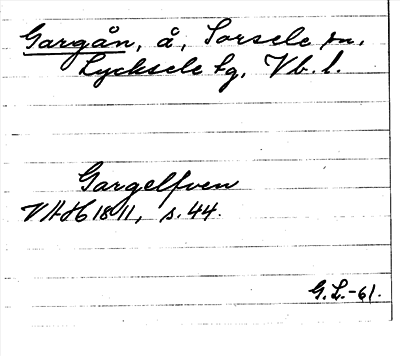 Gargån, å, Sorsele sn.
Lycksele tg, Vb. l.
Gargelfven
VAH 1811, s. 44.
G.L.-61.